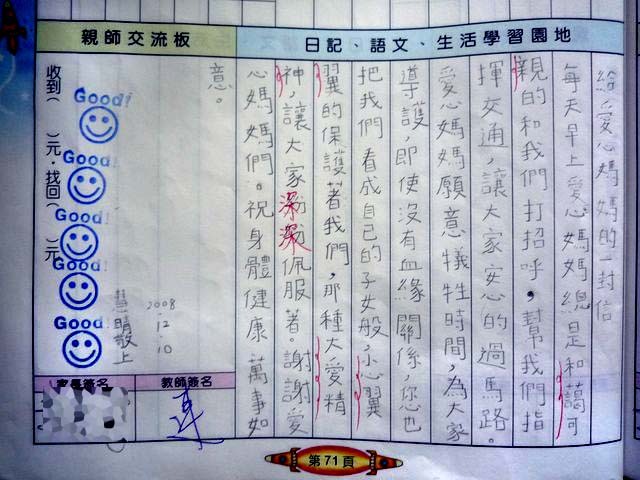 親師交流板
日記、語文、生活學習園地
給愛心媽媽的一封信
每天早上愛心媽媽總是和藹可
親的和我們打招呼，幫我們指
揮交通，讓大家安心的過馬路。
愛心媽媽願意犧牲時間，為大家
導護，即使沒有血緣關係，您也
把我們看成自己的子女般，小心翼
翼的保護著我們，那種大愛精
神，讓大家深深佩服著。謝謝愛
心媽媽們。祝身體健康 萬事如
意。
2008.12.10
慧晴敬上
收到（ ）元．找回（ ）元
Good!
Good!
Good!
Good!
Good!
家長簽名
教師簽名
第71頁